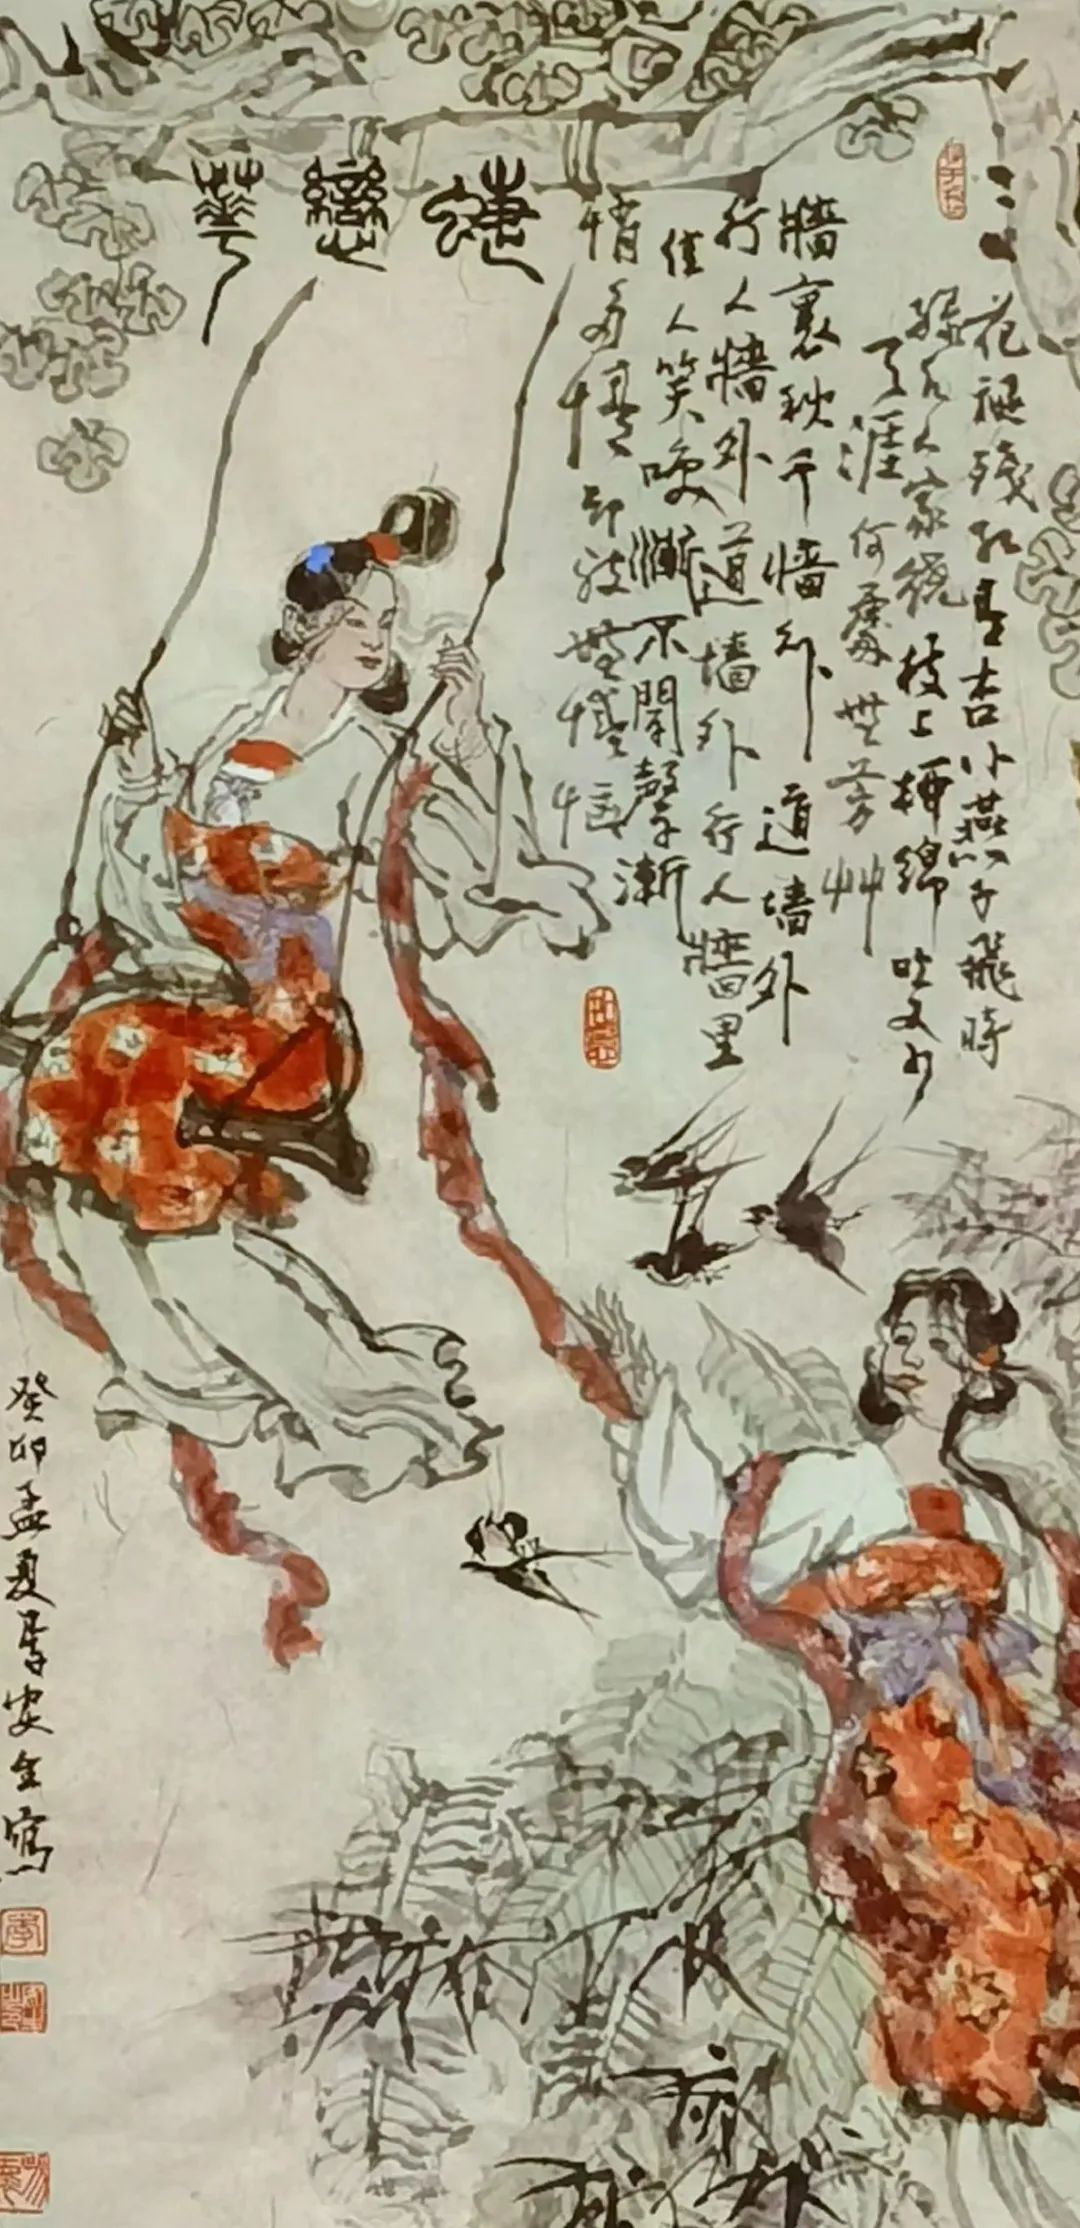 蝶戀華
花褪殘紅青杏小燕子飛時
綠水人家繞枝上柳綿吹又少
天涯何處無芳艸
牆裏秋千牆外道墙外
行人牆外道墙外行人牆里
佳人笑喚漸不聞聲漸
悄多情卻被無情惱
癸卯孟夏安全寫